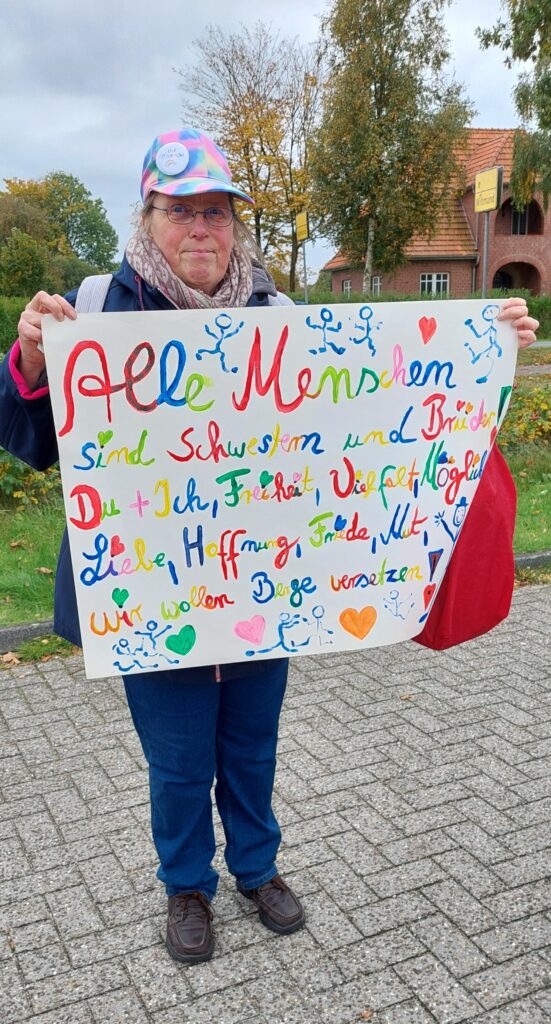 Alle Menschen
sind Schwestern und Brüder
Du + Ich, Freiheit, Vielfalt, Möglich
Liebe, Hoffnung, Friede, Mut,
wir wollen Berge versetzen!